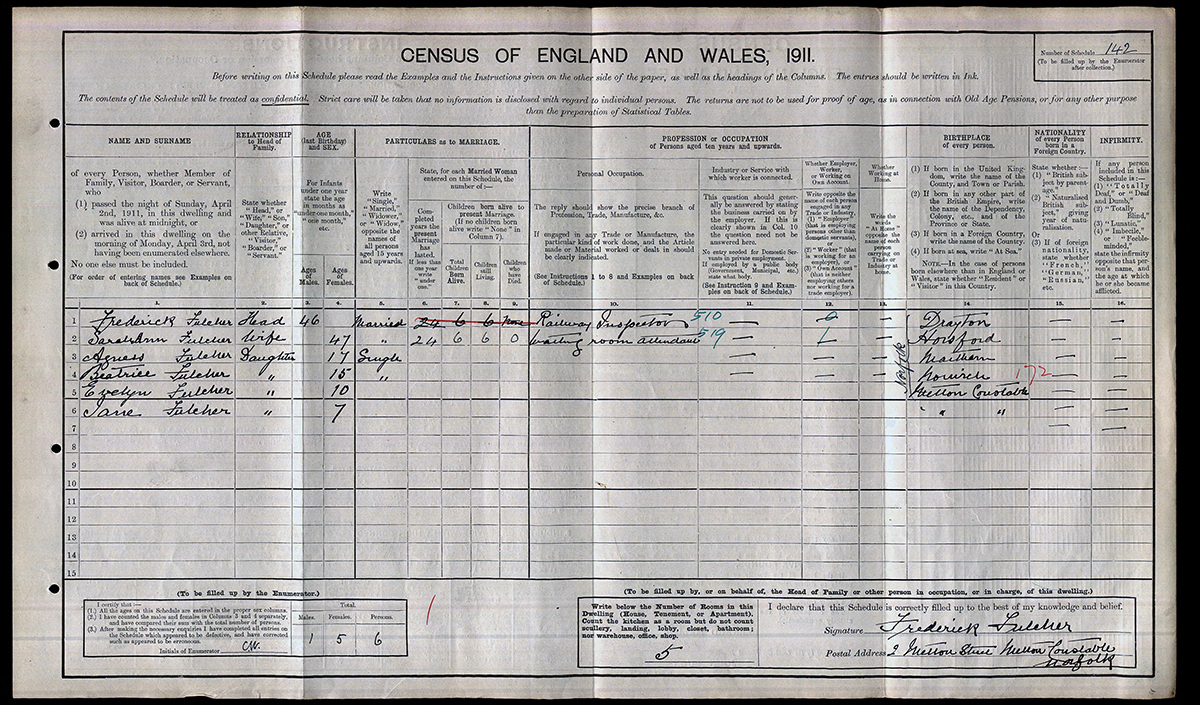 CENSUS OF ENGLAND AND WALES, 1911.
Number of Schedule 142
(To be filled up by the Enumerator
after collection.)
Before writing on this Schedule please read the Examples and the Instructions given on the other side of the paper, as well as the headings of the Columns. The entries should be written in Ink.
The contents of the Schedule will be treated as confidential. Strict care will be taken that no information is disclosed with regard to individual persons. The returns are not to be used for proof of age, as in connection with Old Age Pensions, or for any other purpose
than the preparation of Statistical Tables.
NAME AND SURNAME
of every Person, whether Member of
Family, Visitor, Boarder, or Servant,
who
(1) passed the night of Sunday, April
2nd, 1911, in this dwelling and
was alive at midnight, or
(2) arrived in this dwelling on the
morning of Monday, April 3rd, not
having been enumerated elsewhere.
No one else must be included.
(For order of entering names see Examples on
back of Schedule.)
RELATIONSHIP
to Head of
Family.
State whether
"Head," or
"Wife," "Son,"
"Daughter," or
other Relative,
"Visitor,"
"Boarder," or
"Servant."
AGE
(last Birthday)
and SEX.
For Infants
under one year
state the age
in months as
"under one month,"
"one month,"
etc.
Ages
of
Males.
Ages
of
Females.
PARTICULARS as to MARRIAGE.
Write
"Single,"
"Married,"
"Widower,"
or "Widow,"
opposite the
names of
all persons
aged 15 years
and upwards.
State, for each Married Woman
entered on this Schedule, the
number of :—
Com-
pleted
years the
present
Marriage
has
lasted.
If less than
one year
write
"under
one."
Children born alive to
present Marriage.
(If no children born
alive write "None" in
Column 7).
Total
Children
Born
Alive.
Children
still
Living.
Children
who
have
Died.
PROFESSION or OCCUPATION
of Persons aged ten years and upwards.
Personal Occupation.
The reply should show the precise branch of
Profession, Trade, Manufacture, &c.
If engaged in any Trade or Manufacture, the
particular kind of work done, and the Article
made or Material worked or dealt in should
be clearly indicated.
(See Instructions 1 to 8 and Examples on back
of Schedule.)
Industry or Service
with which worker is connected.
This question should gener-
ally be answered by stating
the business carried on by
the employer. If this is
clearly shown in Col. 10
the question need not be
answered here.
No entry needed for Domestic Ser-
vants in private employment.
If employed by a public body
(Government, Municipal, etc.)
state what body.
(See Instruction 9 and Exam-
ples on back of Schedule.)
Whether Employer,
Worker,
or Working on
Own Account.
Write opposite the
name of each person
engaged in any
Trade or Industry,
(1) "Employer"
(that is employing
persons other than
domestic servants),
or
(2) "Worker" (that
is working for an
employer), or
(3) "Own Account"
(that is neither
employing others
nor working for a
trade employer).
Whether
Working at
Home.
Write the
words
"At Home"
opposite the
name of each
person
carrying on
Trade or
Industry at
home.
BIRTHPLACE
of every person.
(1) If born in the United King-
dom, write the name of the
County, and Town or Parish.
(2) If born in any other part of
the British Empire, write
the name of the Dependency,
Colony, etc., and of the
Province or State.
(3) If born in a Foreign Country,
write the name of the Country.
(4) If born at sea, write "At Sea."
NOTE.—In the case of persons
born elsewhere than in England or
Wales, state whether "Resident" or
"Visitor" in this Country.
NATIONALITY
of every Person
born in a
Foreign Country.
State whether :—
(1) "British
subject by
parent-
age."
(2) "Naturalised
British sub-
ject," giving
year of natu-
ralisation.
Or
(3) If of foreign
nationality,
state whether
"French,"
"German,"
"Russian,"
etc.
INFIRMITY.
If any person
included in this
Schedule is :—
(1) "Totally
Deaf," or "Deaf
and Dumb,"
(2) "Totally
Blind,"
(3) "Lunatic,"
(4) "Imbecile,"
or "Feeble-
minded,"
state the infirmity
opposite that per-
son's name, and
the age at which
he or she became
afflicted.
1. 2. 3. 4. 5. 6. 7. 8. 9. 10. 11. 12. 13. 14. 15. 16.
1 Frederick Fulcher Head 46 Married 24 6 6 None Railway Inspector 510 — — Drayton — —
2 Sarah Ann Fulcher Wife 47 " 24 6 6 0 waiting room attendant 519 — 1 Horsford — —
3 Agness Fulcher Daughter 17 Single — — — —
4 Beatrice Fulcher " 15 " — — Norwich 172 — —
5 Evelyn Fulcher " 10 Melton Constable — —
6 Jane Fulcher " 7 " " — —
Norfolk
7 — —
8
9
10
11
12
13
14
15
(To be filled up by the Enumerator.)
I certify that :—
(1.) All the ages on this Schedule are entered in the proper sex columns.
(2.) I have counted the males and females in Columns 3 and 4 separately,
and have compared their sum with the total number of persons.
(3.) After making the necessary enquiries I have completed all entries on
the Schedule which appeared to be defective, and have corrected
such as appeared to be erroneous.
Initials of Enumerator
Total.
Males. Females. Persons.
1 5 6
(To be filled up by, or on behalf of, the Head of Family or other person in occupation, or in charge, of this dwelling.)
Write below the Number of Rooms in this
Dwelling (House, Tenement, or Apartment).
Count the kitchen as a room but do not count
scullery, landing, lobby, closet, bathroom;
nor warehouse, office, shop.
5
I declare that this Schedule is correctly filled up to the best of my knowledge and belief.
Signature Frederick Fulcher
Postal Address 2 Melton Street Melton Constable
Norfolk